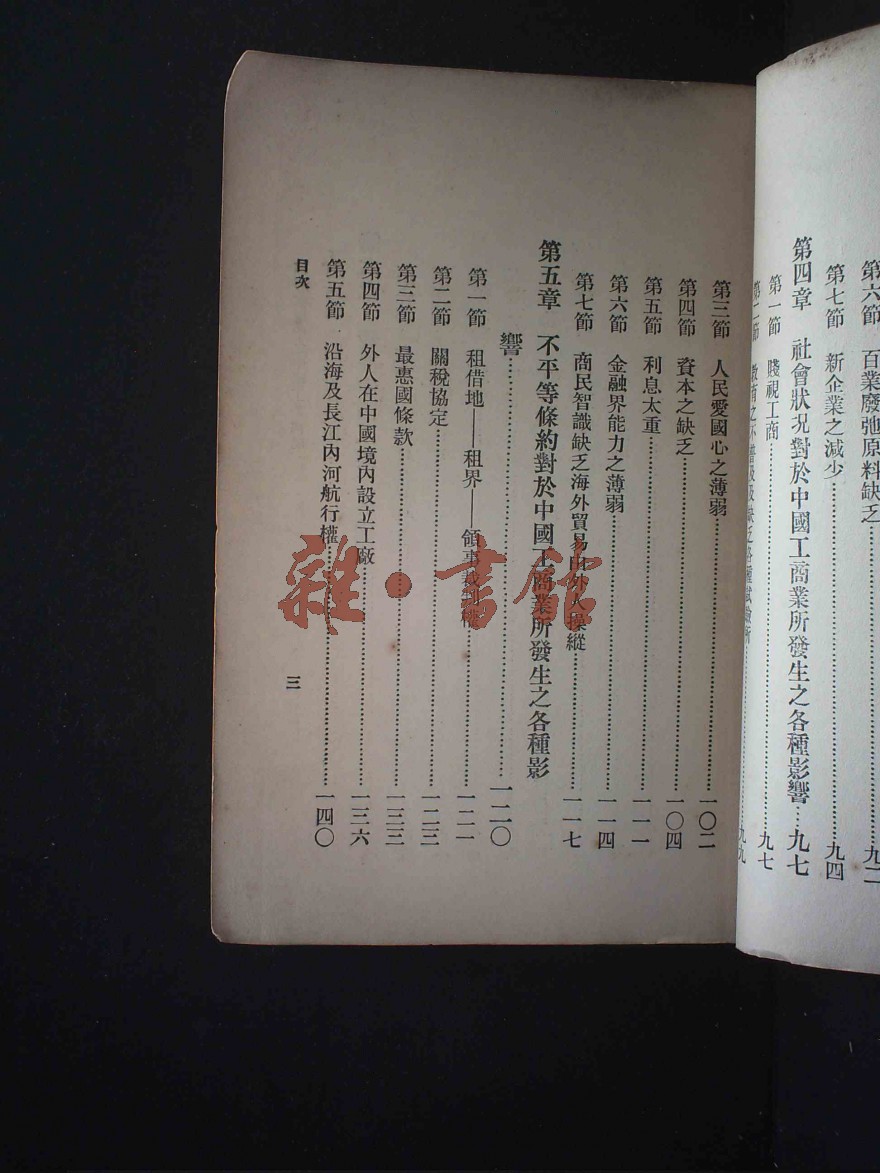 第六節　百業廢弛原料缺乏……九二
第七節　新企業之減少……九四
第四章　社會狀况對於中國工商業所發生之各種影響……九七
第一節　賤視工商……九七
第二節　教育之不普及及缺乏各種試驗所……九九
第三節　人民愛國心之薄弱……一〇二
第四節　資本之缺乏……一〇四
第五節　利息太重……一一一
第六節　金融界能力之薄弱……一一四
第七節　商民智識缺乏海外貿易由外人操縱……一一七
第五章　不平等條約對於中國工商業所發生之各種影
響……一二〇
第一節　租借地——租界——領事裁判權……一二一
第二節　關稅協定……一二三
第三節　最惠國條款……一三三
第四節　外人在中國境內設立工廠……一三六
第五節　沿海及長江內河航行權……一四〇
目次
三
雜·書館